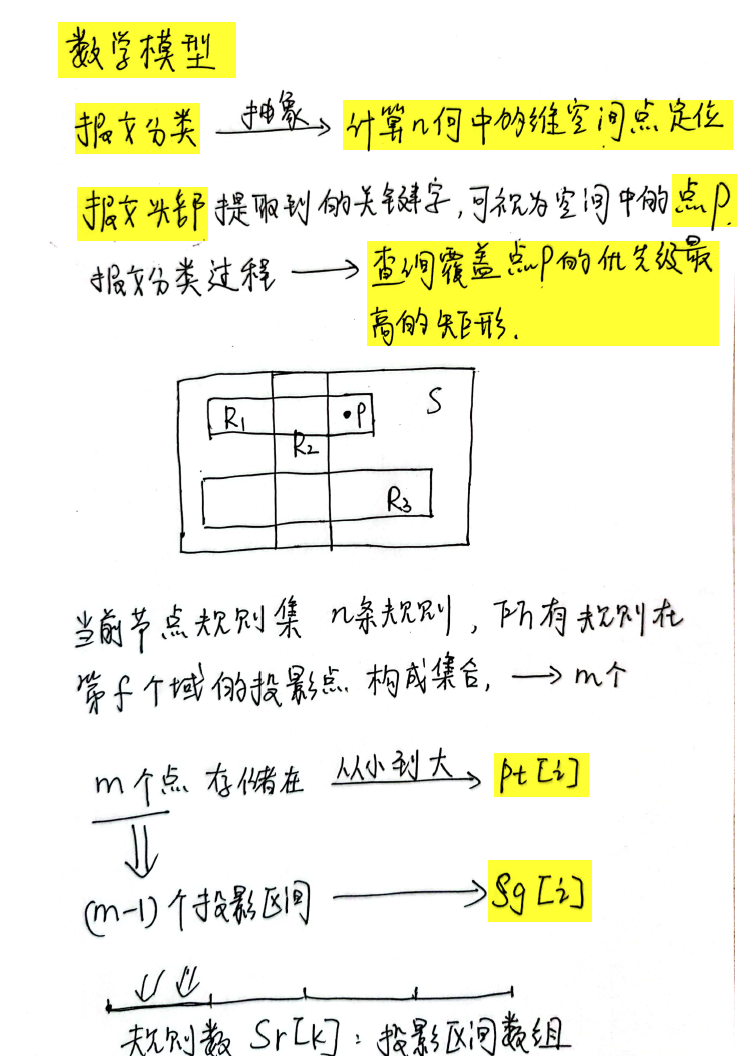 数学模型
报文分类 抽象 计算几何中的维空间点定位
报文头部提取到的关键字,可视为空间中的点P.
报文分类过程 查询覆盖点P的优先级最
高的矩形.
S
R1 P
R2
R3
当前节点规则集 n条规则, 所有规则在
第f个域的投影点 构成集合, m个
m个点 存储在 从小到大 Pt[i]
(m-1)个投影区间 Sg[i]
规则数 Sr[k]: 投影区间数组